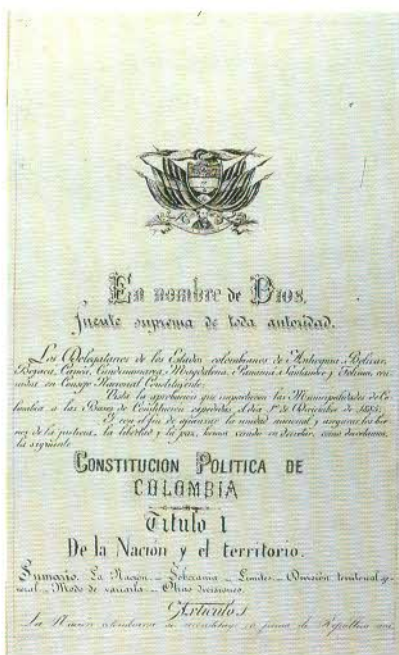 En nombre de Dios,
fuente suprema de toda autoridad.
Los Delegatarios de los Estados colombianos de Antioquia, Bolívar,
Boyacá, Cauca, Cundinamarca, Magdalena, Panamá, Santander y Tolima, reu-
nidos en Consejo Nacional Constituyente;
Vista la aprobación que impartieron las Municipalidades de Co-
lombia a las Bases de Constitución expedidas el día 1º de Diciembre de 1885;
Y con el fin de afianzar la unidad nacional y asegurar los bie-
nes de la justicia, la libertad y la paz, hemos venido en decretar, como decretamos,
la siguiente
CONSTITUCION POLITICA DE
COLOMBIA
Titulo 1
De la Nación y el territorio.
Sumario. La Nación _ Soberanía _ Limites _ División territorial ge-
neral _ Modo de variarla _ Otras divisiones.
Artículo 1
La Nación colombiana se reconstituye en forma de República